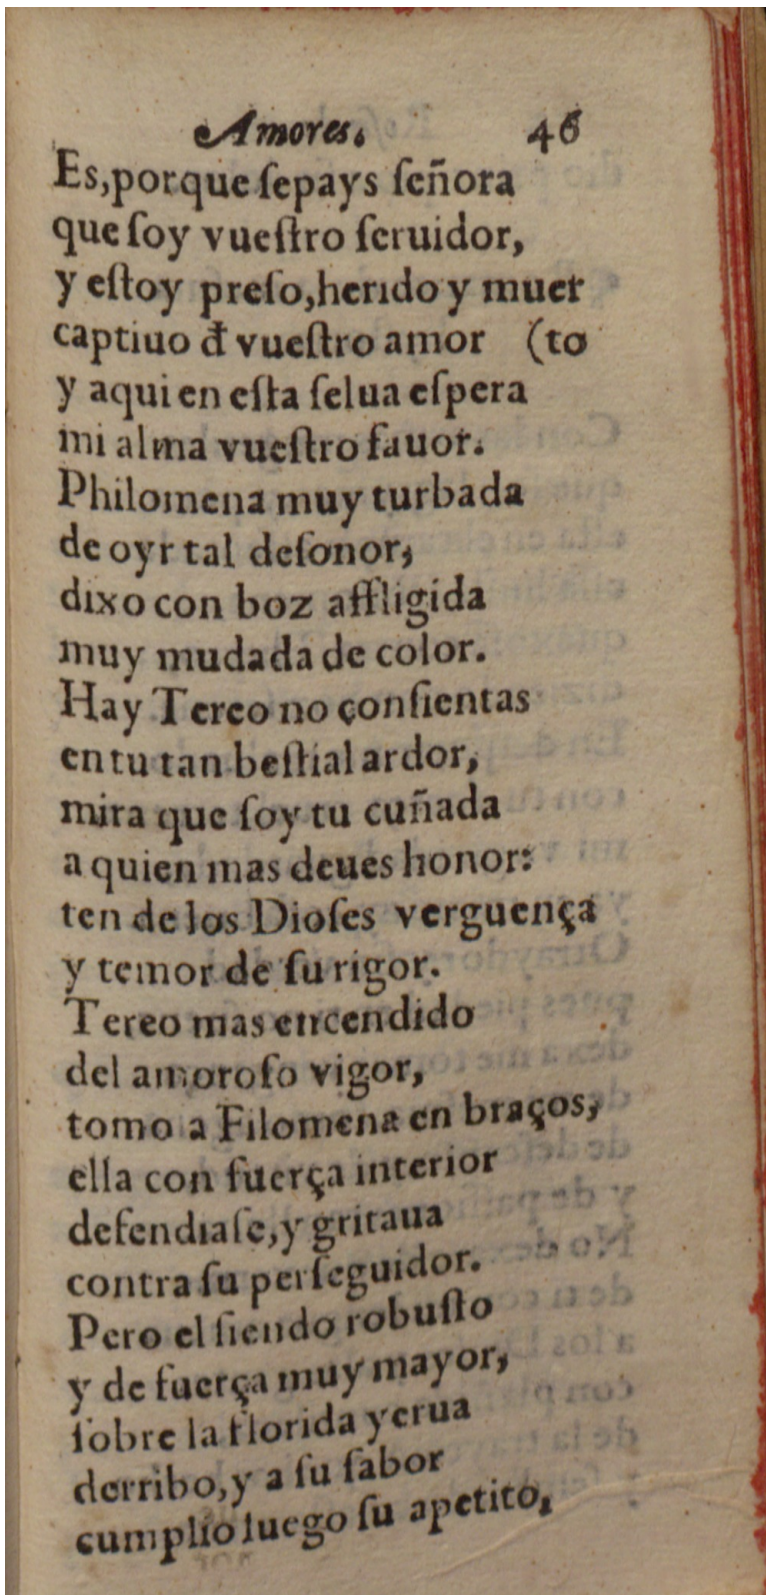 Amores. 46
Es,porque ſepays ſeñora
que ſoy vueſtro ſeruidor,
y eſtoy preſo,herido y muer
captiuo đ vueſtro amor (to
y aqui en eſta ſelua eſpera
mi alma vueſtro fauor.
Philomena muy turbada
de oyr tal deſonor,
dixo con boz affligida
muy mudada de color.
Hay Tereo no conſientas
en tu tan beſtial ardor,
mira que ſoy tu cuñada
a quien mas deues honor:
ten de los Dioſes verguença
y temor de ſu rigor.
Tereo mas encendido
del amoroſo vigor,
tomo a Filomena en braços,
ella con fuerça interior
defendiaſe,y gritaua
contra ſu perſeguidor.
Pero el ſiendo robuſto
y de fuerça muy mayor,
ſobre la florida yerua
derribo,y a ſu ſabor
cumplio luego ſu apetito,